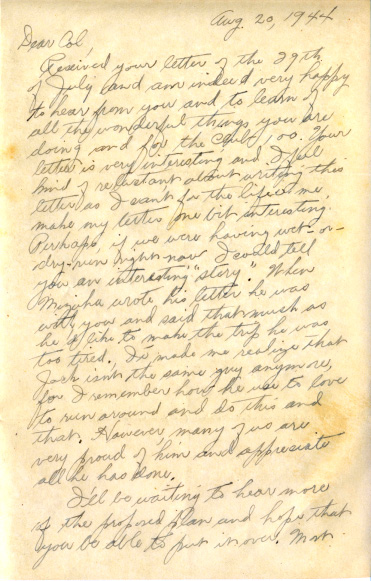 Aug. 20, 1944
Dear Col,
Received your letter of the 29th
of July and am indeed very happy
to hear from you and to learn of
all the wonderful things you are
doing and for the Club, too. Your
letter is very interesting and I feel
kind of reluctant about writing this
letter as I can't for the life of me
make my letter one bit interesting.
Perhaps, if we were having wet-or-
dry-run right now I could tell
you an interesting "story." When
wrote his letter he was
with you and said that much as
he'd like to make the trip he was
too tired. It made me realize that
Jack isn't the same guy anymore,
for I remember how he use to love
to run around and do this and
that. However, many of us are
very proud of him and appreciate
all he has done.
I'll be waiting to hear more
of the proposed plan and hope that
you be able to put it over.